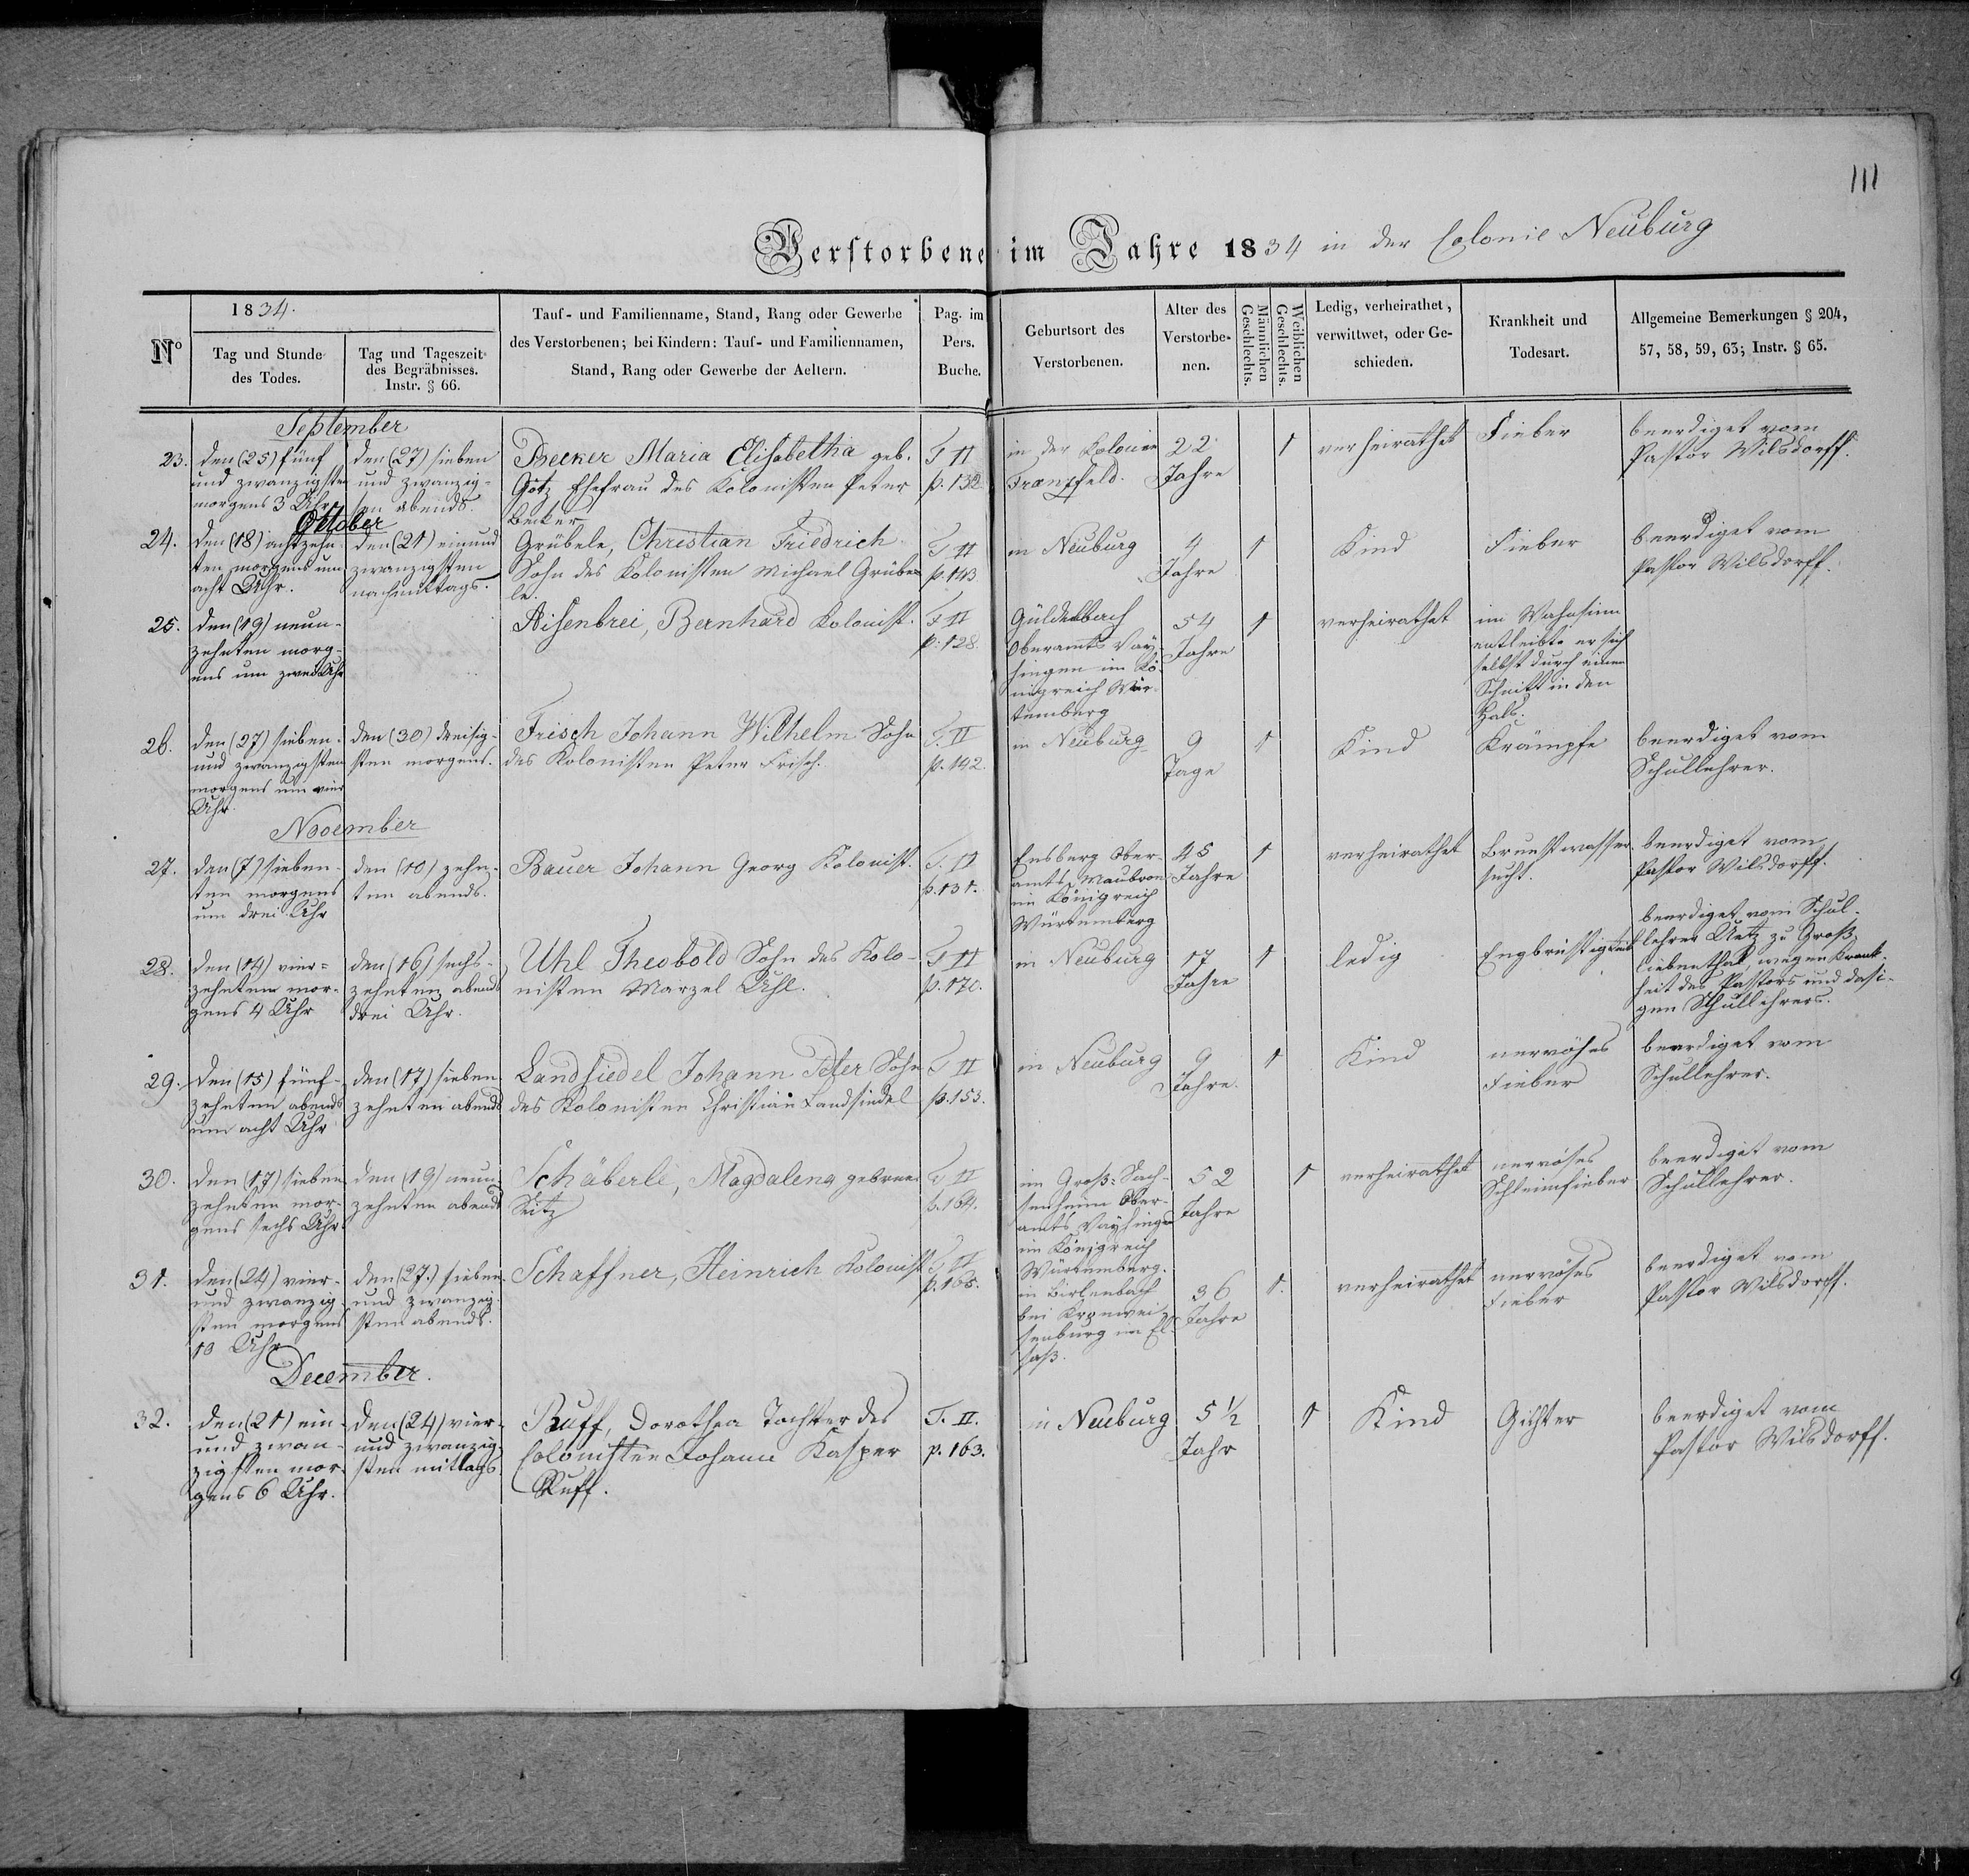 111
Verstorbene im Jahre 1834 in der Colonie Neuburg
No
1834.
Tag und Stunde
des Todes.
Tag und Tageszeit
des Begräbnisses.
Instr. § 66.
Tauf- und Familienname, Stand, Rang oder Gewerbe
des Verstorbenen; bei Kindern: Tauf- und Familiennamen,
Stand, Rang oder Gewerbe der Aeltern.
Pag. im
Pers.
Buche.
Geburtsort des
Verstorbenen.
Alter des
Verstorbe-
nen.
Männlichen
Geschlechts.
Weiblichen
Geschlechts.
Ledig, verheirathet,
verwittwet, oder Ge-
schieden.
Krankheit und
Todesart.
Allgemeine Bemerkungen § 204,
57, 58, 59, 63; Instr. § 65.
September
23.
den (25) fünf
und zwanzigsten
morgens 3 Uhr
den (27) sieben
und zwanzig-
sten abends.
Becker Maria Elisabetha geb.
Götz Ehefrau des Kolonisten Peter
Becker
T II
p. 132.
in der Kolonie
Franzfeld.
22
Jahre
1
verheirathet
Fieber
beerdiget vom
Pastor Wilsdorff.
October
24.
den (18) achtzehn-
ten morgens um
acht Uhr.
den (21) einund
zwanzigsten
nachmittags.
Grübele, Christian Friedrich
Sohn des Kolonisten Michael Grübe-
le.
T II
p. 143
in Neuburg
4
Jahre
1
Kind
Fieber
beerdiget vom
Pastor Wilsdorff.
25.
den (19) neun-
zehnten morg-
ens um zwei Uhr
Aisenbrei, Bernhard Kolonist.
T II
p. 128.
Güldelbach
Oberamts Vay-
hingen im Kö-
nigreich Wür-
temberg
54
Jahre
1
verheirathet
im Wahnsinn
entleibte er sich
selbst durch einen
Schnitt in den
Hals.
26.
den (27) sieben-
und zwanzigsten
morgens um vier
Uhr.
den (30) dreisig-
sten morgens.
Frisch Johann Wilhelm Sohn
des Kolonisten Peter Frisch.
T. II
p. 142.
in Neuburg
9
Tage
1
Kind
Krämpfe
beerdiget vom
Schullehrer.
November
27.
den (7) sieben-
ten morgens
um drei Uhr
den (10) zehn-
ten abends.
Bauer Johann Georg Kolonist.
T. II
p. 131.
Ensberg Ober-
amts Maubron
im Königreich
Würtemberg
45
Jahre
1
verheirathet
Brustwasser-
sucht.
beerdiget vom
Pastor Wilsdorff.
28.
den (14) vier-
zehnten mor-
gens 4 Uhr
den (16) sechs-
zehnten abends
drei Uhr.
Uhl Theobold Sohn des Kolo-
nisten Marzel Uhl.
T II
p. 170.
in Neuburg
17
Jahre
1
ledig
Engbrüstigkeit
beerdiget vom Schul-
lehrer Uetz zu Groß-
liebenthal, wegen Krank-
heit des Pastors und dasi-
gen Schullehrers.
29.
den (15) fünf-
zehnten abends
um acht Uhr
den (17) sieben-
zehnten abends
Landsiedel Johann Peter Sohn
des Kolonisten Christian Landsiedel
T II
p. 153.
in Neuburg
9
Jahre.
1
Kind
nervöses
Fieber
beerdiget vom
Schullehrer.
30.
den (17) sieben
zehnten mor-
gens sechs Uhr
den (19) neun-
zehnten abends
Schäberle, Magdalena geborne
Seitz
T II
p. 164.
in Groß-Sach-
senheim Ober-
amts Vayhingen
im Königreich
Würtemberg.
52
Jahre
1
verheirathet
nervöses
Schleimfieber
beerdiget vom
Schullehrer.
31.
den (24) vier-
und zwanzig-
sten morgens
10 Uhr
den (27.) sieben
und zwanzig-
sten abends.
Schaffner, Heinrich Kolonist
T II
p. 165.
in Birlenbach
bei Kronwei-
senburg im El-
saß.
36
Jahre
1.
verheirathet
nervöses
Fieber
beerdiget vom
Pastor Wilsdorff.
December.
32.
den (21) ein-
und zwan-
zigsten mor-
gens 6 Uhr.
den (24) vier-
und zwanzig-
sten mittags
Ruff, Dorothea Tochter des
Colonisten Johann Kasper
Ruff.
T. II.
p. 163.
in Neuburg
5 1/2
Jahr
1
Kind
Gichter
beerdiget vom
Pastor Wilsdorff.